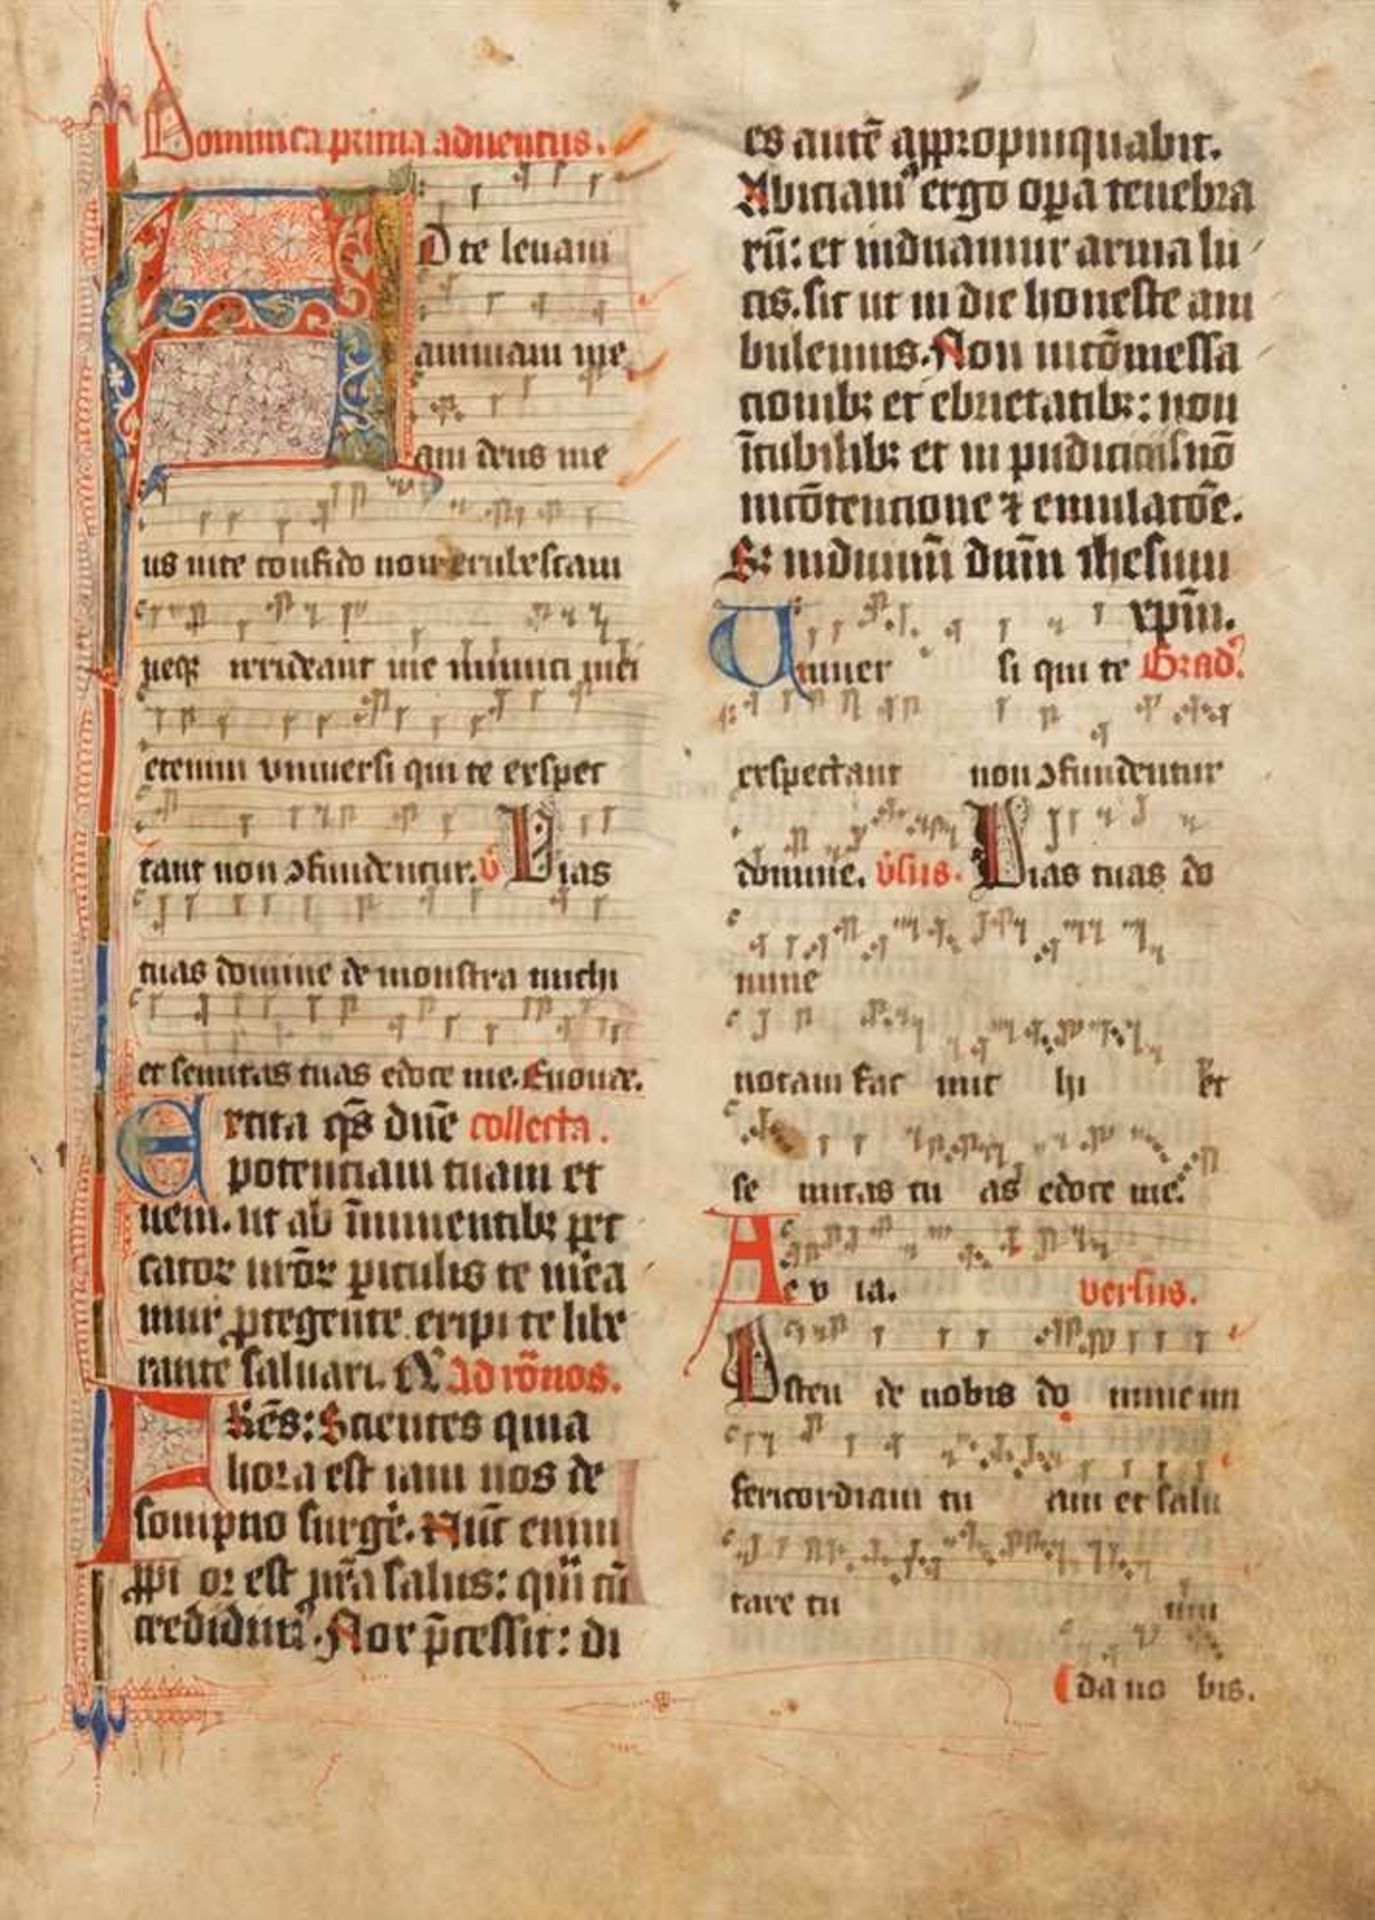 Dominica prima aduentus.
AD te leuaui
animam me
am deus me
us in te confido non erubescam
neqꝫ irrideant me inimici mei
etenim vniuersi qui te exspec
tant non ɔfundentur. v̄ Vias
tuas domine demonstra michi
et semitas tuas edoce me. Euouae.
Excita q̄s dn̄e collecta.
potenciam tuam et
ueni. ut ab īminentibꝫ pec
catoꝝ nr̄oꝝ piculis te mea
mur ꝓtegente eripi te libe
rante saluari. Q Ad rōnos.
Fres: Scientes quia
hora est iam nos de
sompno surgẽ. Nūc enim
ꝓpi or est nr̄a salus: qͣm cū
credidimꝰ. Nox p̄cessit: di
es autē appropinquabit.
Abiciamꝰ ergo opa tenebra
rū: et induamur arma lu
cis. sic ut in die honeste am
bulemus. Non in cōmessa
cionibꝫ et ebrietatibꝫ: non
ī cubilibꝫ et in pudiciciis nō
in cōtencione ⁊ emulacōe.
S: induimī dūm ihesum
xpm̄.
Uniuer si qui te Grad᷒.
exspectant non ɔfundentur
domine. v̄sus. Vias tuas do
mine
notam fac mic hi et
se mitas tu as edoce me.
Ae v ia. versus.
Osten de nobis do mine mi
sericordiam tu am et salu
tare tu um
da no bis.